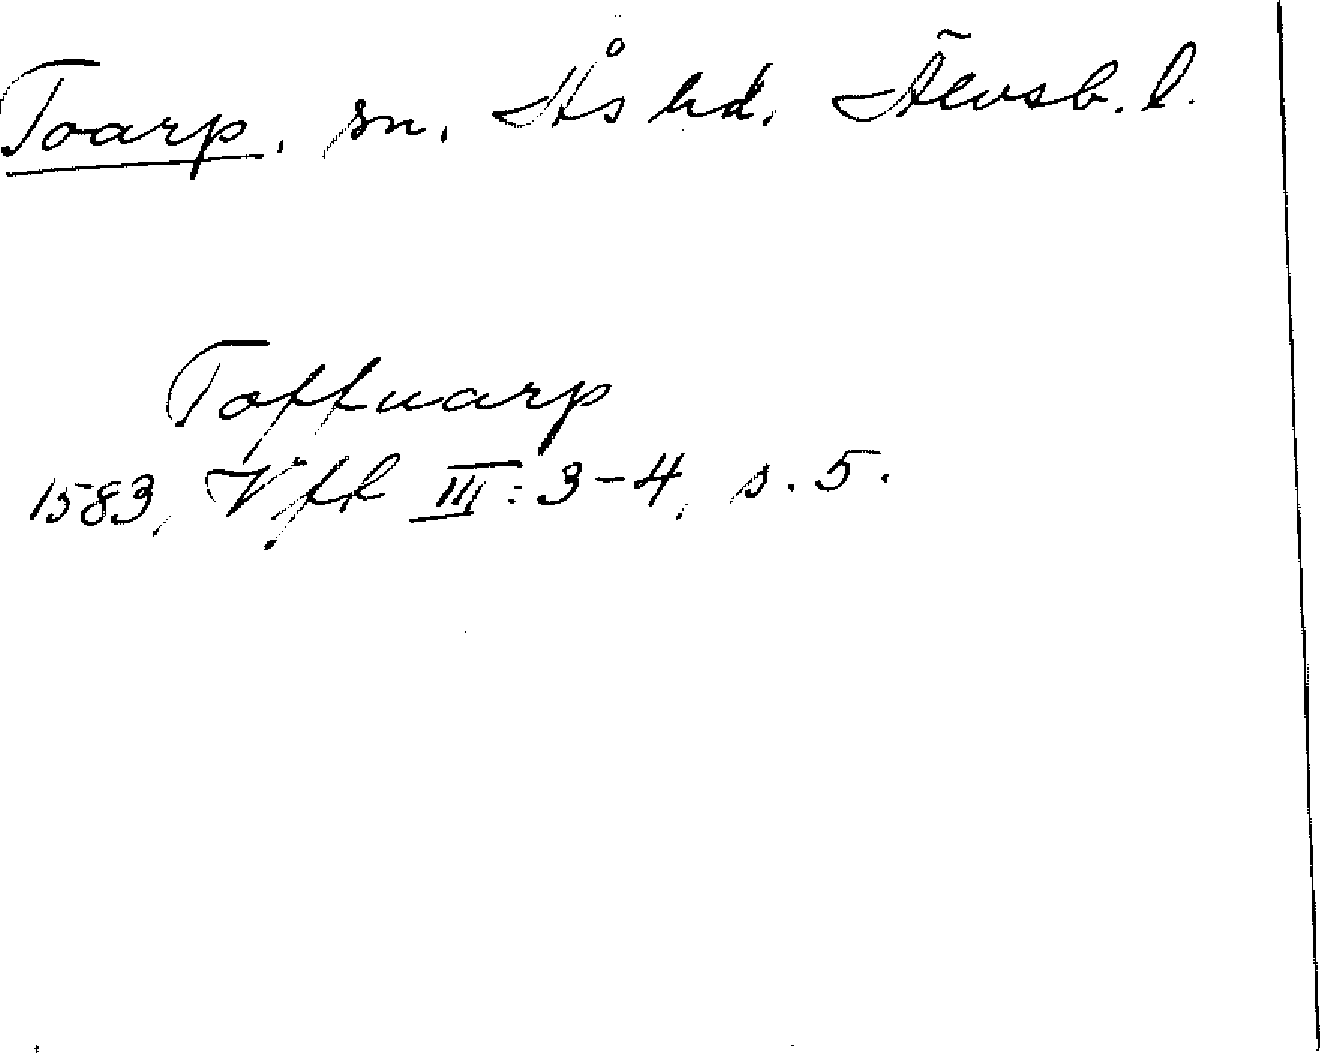 Toarp. sn. Ås hd. Älvsb. l.
Toffuarp
1583, Vff III: 3-4, s. 5.